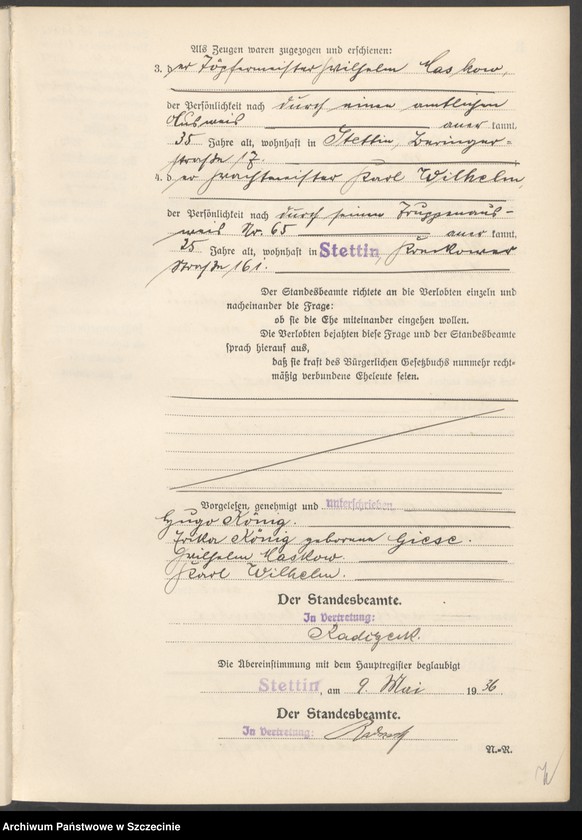 Als Zeugen waren zugezogen und erschienen:
3. der Töpfermeister Wilhelm Maskow,
der Persönlichkeit nach durch einen amtlichen
Ausweis aner kannt,
35 Jahre alt, wohnhaft in Stettin, Beringer-
straße 17.
4. der Wachtmeister Karl Wilhelm,
der Persönlichkeit nach durch seinen Truppenaus-
weis Nr. 65 aner kannt,
25 Jahre alt, wohnhaft in Stettin, Kreckower
Straße 161.
Der Standesbeamte richtete an die Verlobten einzeln und
nacheinander die Frage:
ob sie die Ehe miteinander eingehen wollen.
Die Verlobten bejahten diese Frage und der Standesbeamte
sprach hierauf aus,
daß sie kraft des Bürgerlichen Gesetzbuchs nunmehr recht-
mäßig verbundene Eheleute seien.
Vorgelesen, genehmigt und unterschrieben
Hugo König.
Erika König geborene Giese.
Wilhelm Maskow.
Karl Wilhelm.
Der Standesbeamte.
In Vertretung:
Die Übereinstimmung mit dem Hauptregister beglaubigt
Stettin, am 9. Mai 1936.
Der Standesbeamte.
In Vertretung:
N.-R.
Archiwum Państwowe w Szczecinie